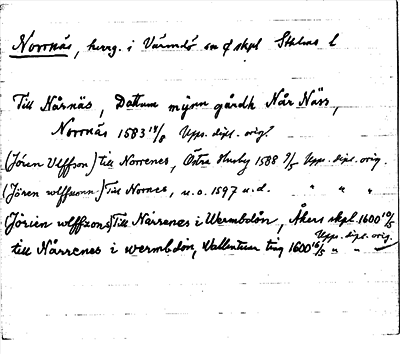 Norrnäs, herrg. i Värmdö sn o skpl Sthlms l
Till Nårnäs, Dattum mijnn gårdh Når Näs,
Norrnäs 1583 18/8 Upps. dipl. orig.
(Jören Ulffson) till Norrenes, Östra Husby 1588 9/5 Upps. dipl. orig.
(Jören wlffsonn) Till Nornes, u.o. 1597 u.d. " " "
(Jörien wlffsons) Till Narrenes i Wermbdön, Åkers skpl 1600 10/5 Upps. dipl. orig.
till Nårrenes i wermbdön, Vallentuna ting 1600 16/5 " "